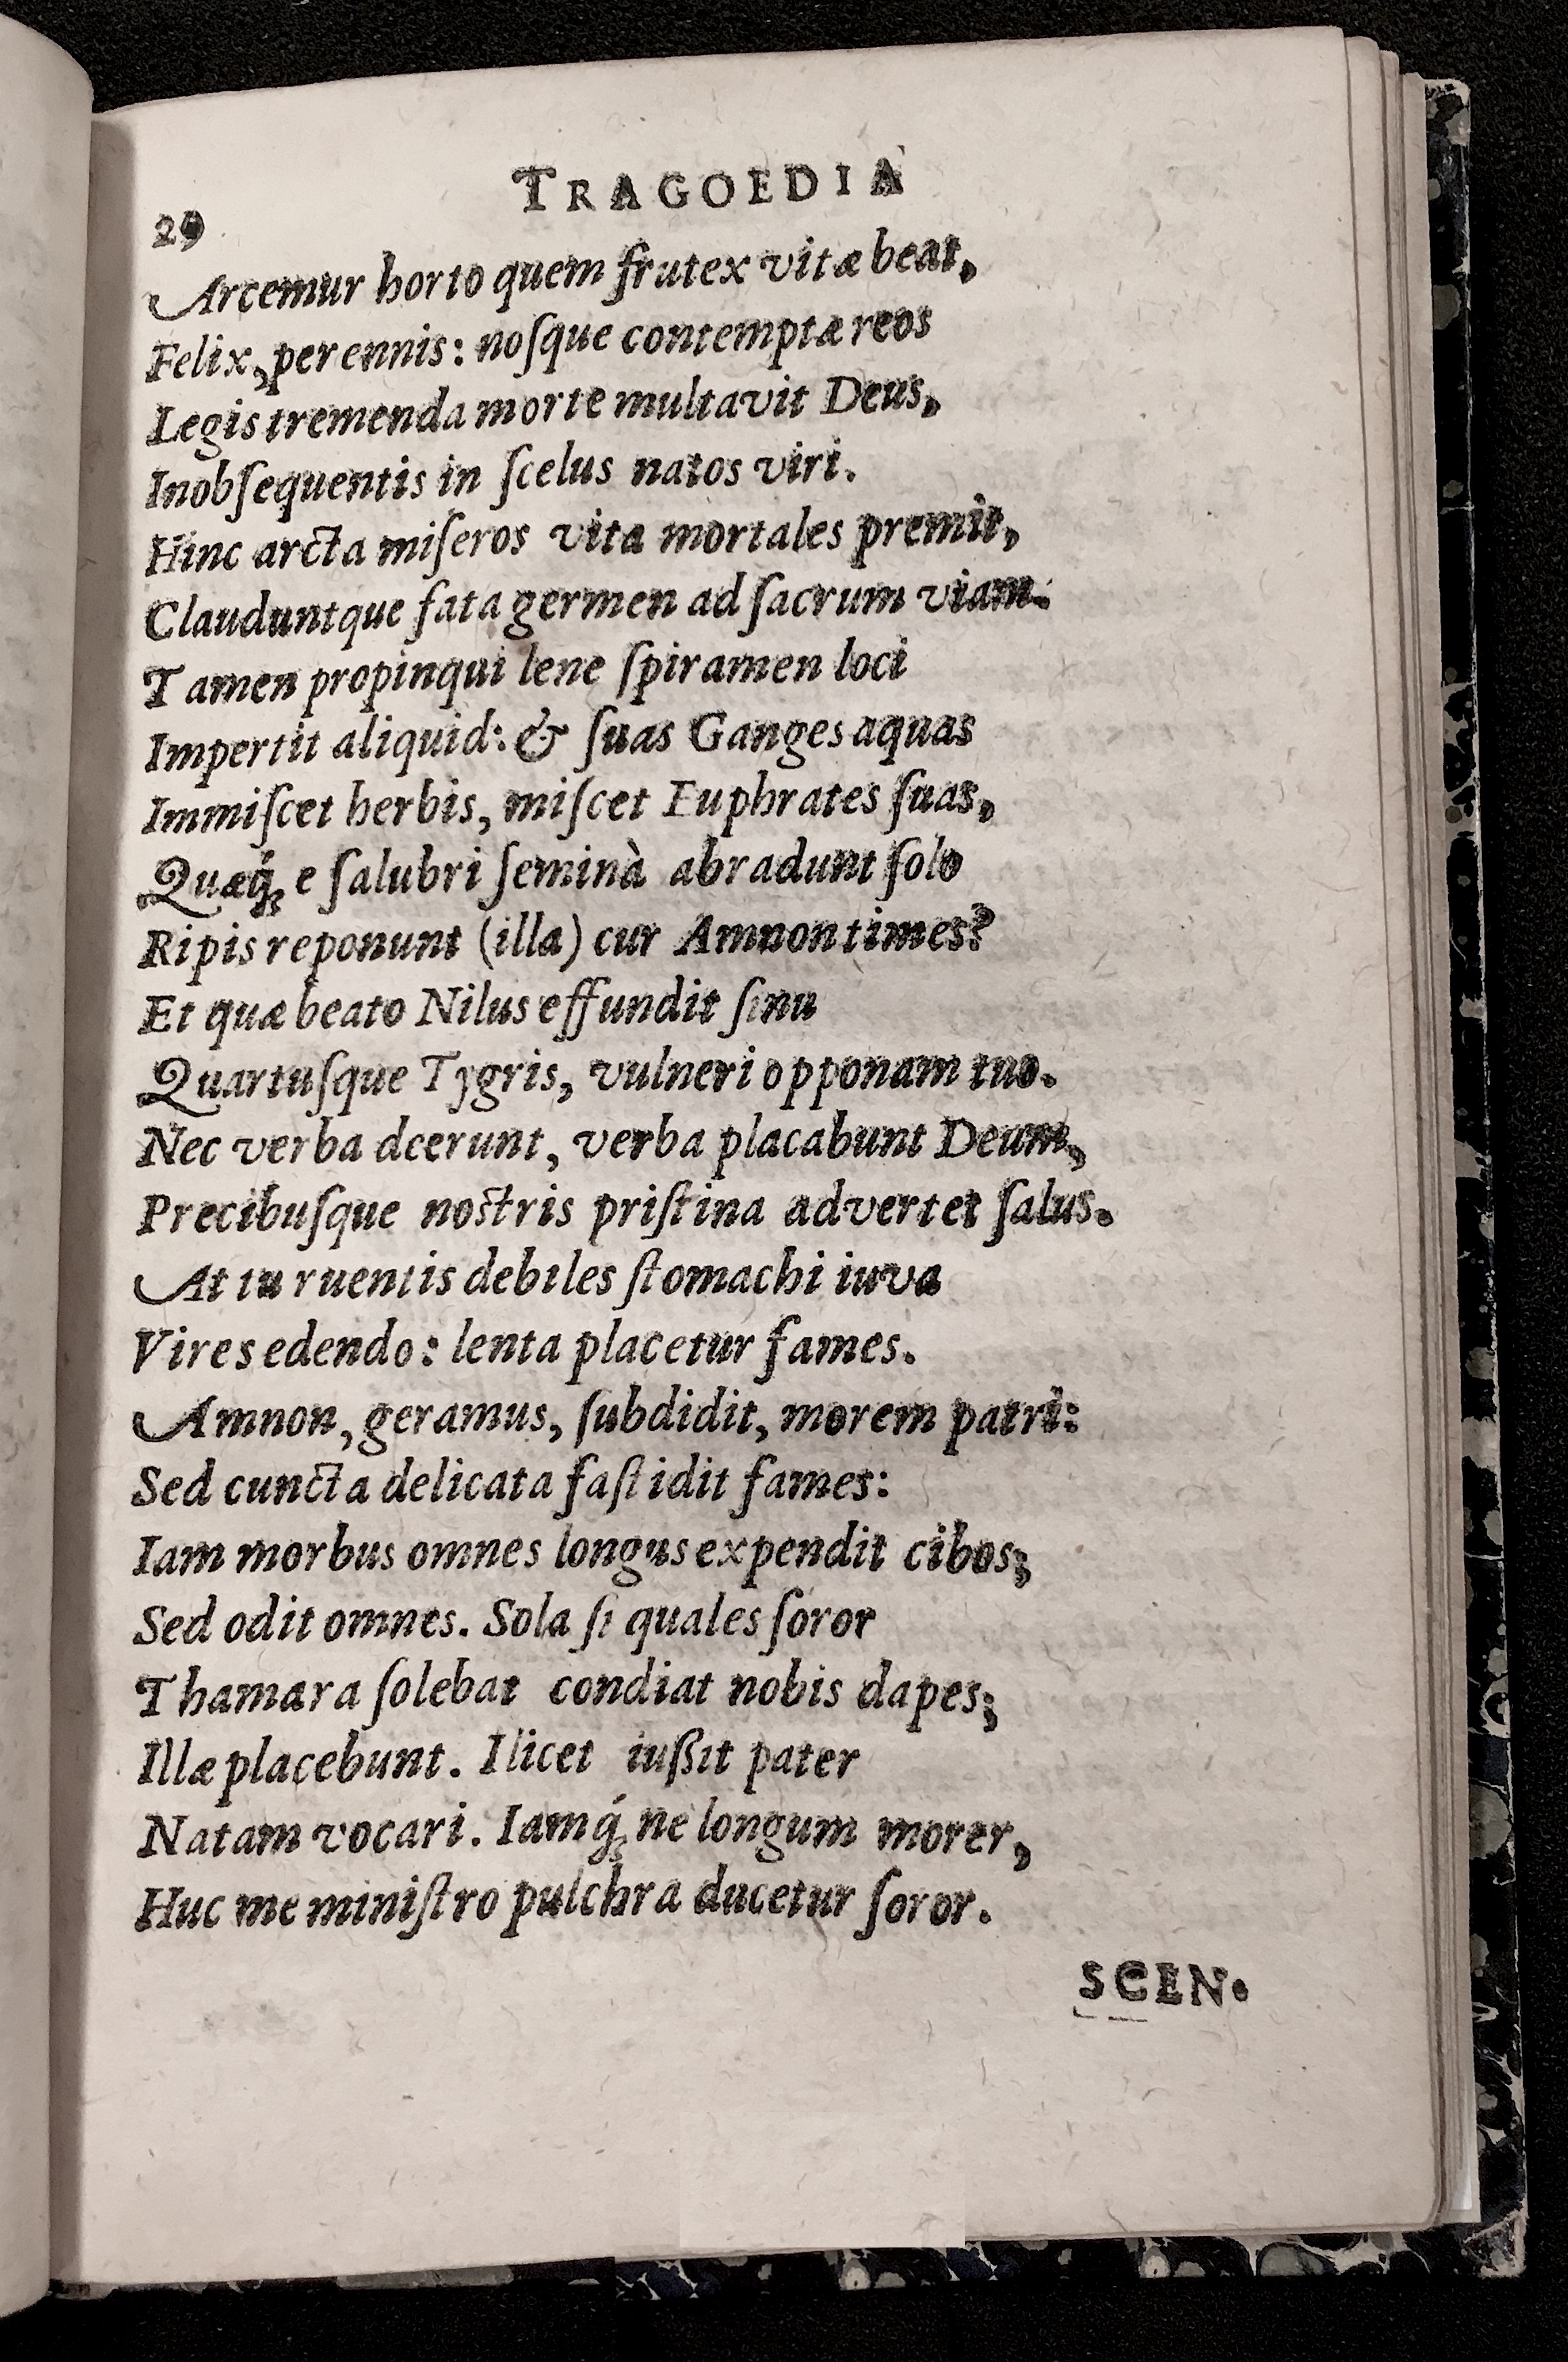 TRAGOEDIA
29
Arcemur horto quem frutex vitæ beat,
Felix, perennis: noſque contemptæ reos
Legis tremenda morte multavit Deus,
Inobſequentis in ſcelus natos viri.
Hinc arcta miſeros vita mortales premit,
Clauduntque fata germen ad ſacrum viam.
Tamen propinqui lene ſpiramen loci
Impertit aliquid: & ſuas Ganges aquas
Immiſcet herbis, miſcet Euphrates ſuas,
Quæq́; e ſalubri ſeminà abradunt ſolo
Ripis reponunt (illa) cur Amnon times?
Et quæ beato Nilus effundit ſinu
Quartuſque Tygris, vulneri opponam tuo.
Nec verba dcerunt, verba placabunt Deum,
Precibuſque nostris priſtina advertet ſalus.
At tu ruentis debiles ſtomachi iuva
Vires edendo: lenta placetur fames.
Amnon, geramus, ſubdidit, morem patri:
Sed cuncta delicata faſtidit fames:
Iam morbus omnes longus expendit cibos;
Sed odit omnes. Sola ſi quales ſoror
Thamara ſolebat condiat nobis dapes;
Illæ placebunt. Ilicet iußit pater
Natam vocari. Iamq́; ne longum morer,
Huc me miniſtro pulchra ducetur ſoror.
SCEN.